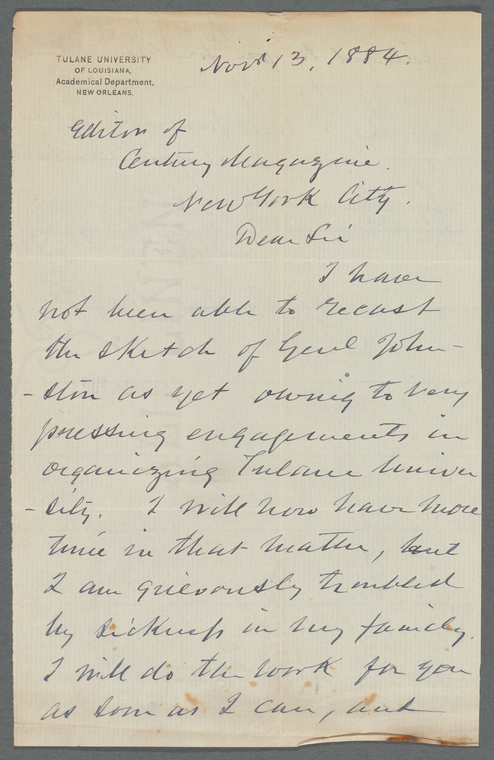 TULANE UNIVERSITY
OF LOUISIANA,
Academical Department,
NEW ORLEANS.
Novr 13, 1884.
Editor of
Century Magazine.
New York City.
Dear Sir
I have
not been able to recast
the sketch of Genl John-
-ston as yet owing to very
pressing engagements in
organizing Tulane Univer
-sity. I will now have more
time in that matter, but
I am grievously troubled
by sickness in my family.
I will do the work for you
as soon as I can, but